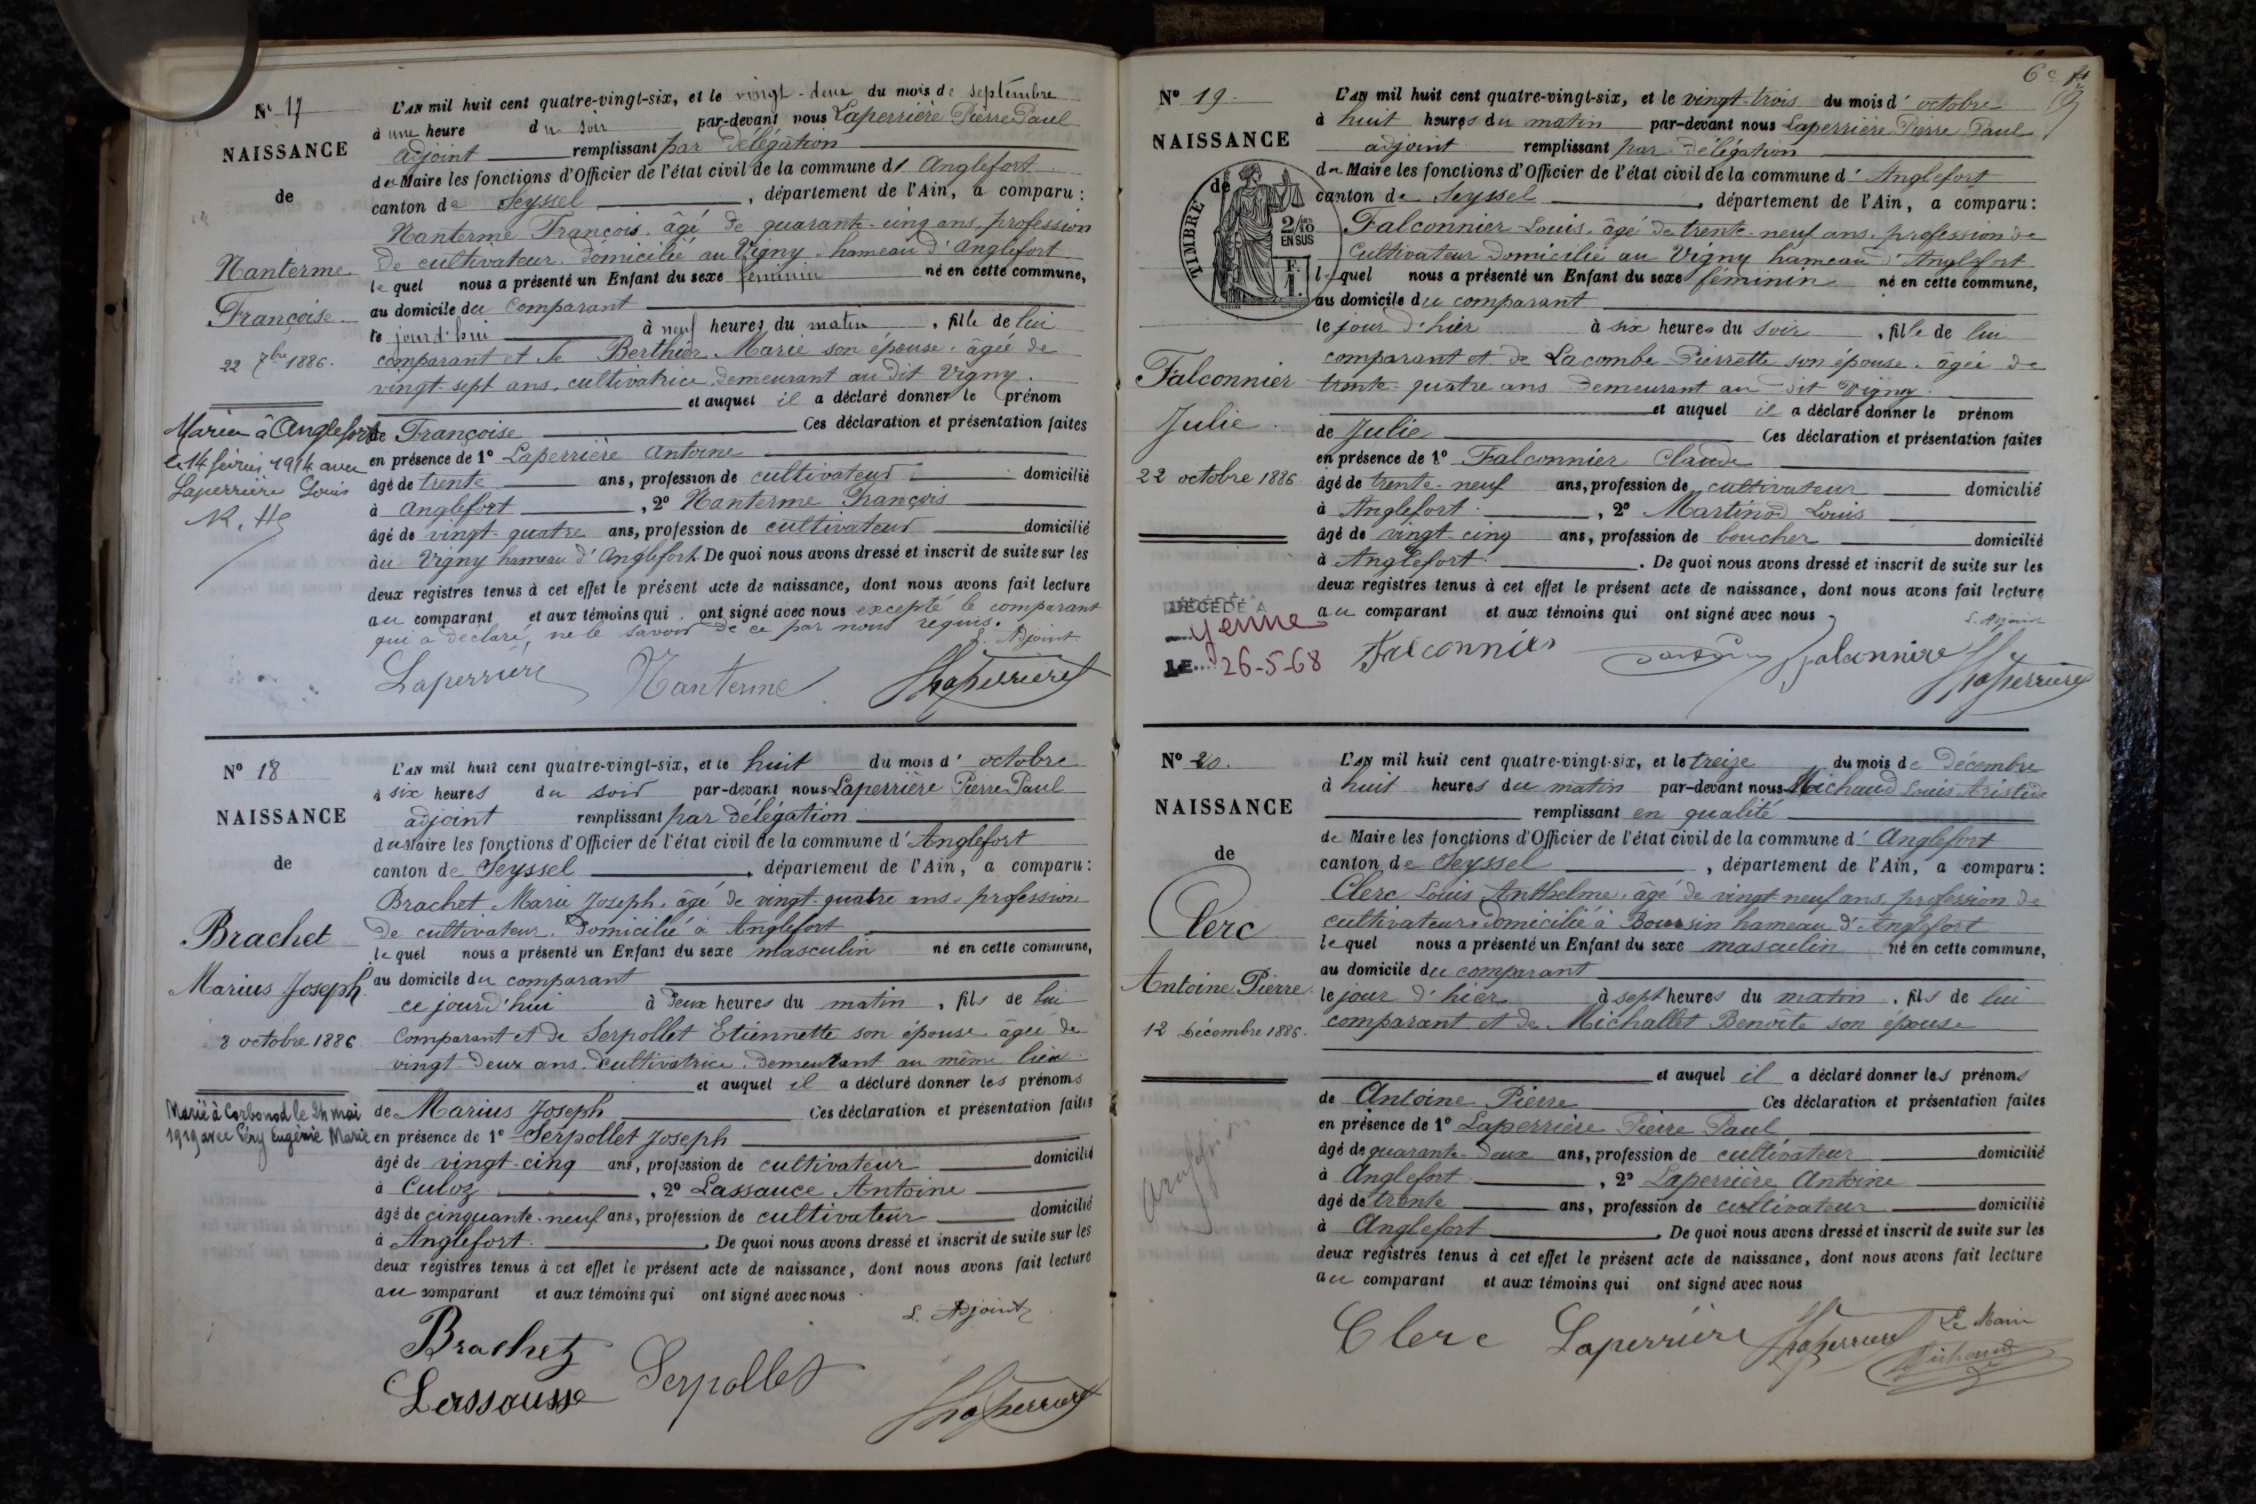 N° 17
NAISSANCE
de
Nanterme
Françoise
22 7bre 1886.
Mariée à Anglefort
le 14 février 1914 avec
Laperrière Louis
L'AN mil huit cent quatre-vingt-six, et le vingt-deux du mois de septembre
à une heure du soir par-devant nous Laperrière Pierre Paul
adjoint remplissant par délégation
du Maire les fonctions d'Officier de l'état civil de la commune d' Anglefort
canton de Seyssel, département de l'Ain, a comparu :
Nanterme François, âgé de quarante-cinq ans, profession
de cultivateur, domicilié au Vigny, hameau d'Anglefort
lequel nous a présenté un Enfant du sexe féminin né en cette commune,
au domicile du comparant
le jourd'hui à neuf heures du matin, fille de lui
comparant et de Berthier Marie son épouse, âgée de
vingt-sept ans, cultivatrice, demeurant au dit Vigny.
et auquel il a déclaré donner le prénom
de Françoise Ces déclaration et présentation faites
en présence de 1° Laperrière Antoine
âgé de trente ans, profession de cultivateur domicilié
à Anglefort, 2° Nanterme François
âgé de vingt-quatre ans, profession de cultivateur domicilié
au Vigny hameau d'Anglefort. De quoi nous avons dressé et inscrit de suite sur les
deux registres tenus à cet effet le présent acte de naissance, dont nous avons fait lecture
au comparant et aux témoins qui ont signé avec nous excepté le comparant
qui a déclaré ne le savoir de ce par nous requis.
L'Adjoint
Laperrière Nanterme Laperrière
N° 18
NAISSANCE
de
Brachet
Marius Joseph
8 octobre 1886
Marié à Corbonod le 24 mai
1919 avec Péry Eugénie Marie
L'AN mil huit cent quatre-vingt-six, et le huit du mois d' octobre
à six heures du soir par-devant nous Laperrière Pierre Paul
adjoint remplissant par délégation
du Maire les fonctions d'Officier de l'état civil de la commune d' Anglefort
canton de Seyssel, département de l'Ain, a comparu :
Brachet Marie Joseph, âgé de vingt-quatre ans, profession
de cultivateur, domicilié à Anglefort
lequel nous a présenté un Enfant du sexe masculin né en cette commune,
au domicile du comparant
ce jourd'hui à deux heures du matin, fils de lui
comparant et de Serpollet Etiennette son épouse âgée de
vingt deux ans, cultivatrice, demeurant au même lieu.
et auquel il a déclaré donner les prénoms
de Marius Joseph Ces déclaration et présentation faites
en présence de 1° Serpollet Joseph
âgé de vingt-cinq ans, profession de cultivateur domicilié
à Culoz, 2° Lassauce Antoine
âgé de cinquante-neuf ans, profession de cultivateur domicilié
à Anglefort. De quoi nous avons dressé et inscrit de suite sur les
deux registres tenus à cet effet le présent acte de naissance, dont nous avons fait lecture
au comparant et aux témoins qui ont signé avec nous
L'Adjoint
Brachet
Lassausse Serpollet Laperrière
6e
N° 19.
NAISSANCE
de
TIMBRE
2/10
EN SUS
F.
1.
Falconnier
Julie
22 octobre 1886
DÉCÉDÉ A
Yenne
LE 26-5-68
L'AN mil huit cent quatre-vingt-six, et le vingt-trois du mois d' octobre
à huit heures du matin par-devant nous Laperrière Pierre Paul
adjoint remplissant par délégation
du Maire les fonctions d'Officier de l'état civil de la commune d' Anglefort
canton de Seyssel, département de l'Ain, a comparu :
Falconnier Louis, âgé de trente-neuf ans, profession de
cultivateur domicilié au Vigny hameau d'Anglefort
lequel nous a présenté un Enfant du sexe féminin né en cette commune,
au domicile du comparant
le jour d'hier à six heures du soir, fille de lui
comparant et de Lacombe Pierrette son épouse, âgée de
trente-quatre ans demeurant au dit Vigny.
et auquel il a déclaré donner le prénom
de Julie Ces déclaration et présentation faites
en présence de 1° Falconnier Claude
âgé de trente-neuf ans, profession de cultivateur domicilié
à Anglefort, 2° Martinod Louis
âgé de vingt-cinq ans, profession de boucher domicilié
à Anglefort. De quoi nous avons dressé et inscrit de suite sur les
deux registres tenus à cet effet le présent acte de naissance, dont nous avons fait lecture
au comparant et aux témoins qui ont signé avec nous
L'Adjoint
Falconnier Falconnier Laperrière
N° 20.
NAISSANCE
de
Clerc
Antoine Pierre
12 Décembre 1886.
L'AN mil huit cent quatre-vingt-six, et le treize du mois de Décembre
à huit heures du matin par-devant nous Michaud Louis Aristide
remplissant en qualité
de Maire les fonctions d'Officier de l'état civil de la commune d' Anglefort
canton de Seyssel, département de l'Ain, a comparu :
Clerc Louis Anthelme, âgé de vingt neuf ans, profession de
cultivateur, domicilié à Boursin hameau d'Anglefort
lequel nous a présenté un Enfant du sexe masculin né en cette commune,
au domicile du comparant
le jour d'hier à sept heures du matin, fils de lui
comparant et de Michallet Benoîte son épouse
et auquel il a déclaré donner les prénoms
de Antoine Pierre Ces déclaration et présentation faites
en présence de 1° Laperrière Pierre Paul
âgé de quarante-deux ans, profession de cultivateur domicilié
à Anglefort, 2° Laperrière Antoine
âgé de trente ans, profession de cultivateur domicilié
à Anglefort De quoi nous avons dressé et inscrit de suite sur les
deux registres tenus à cet effet le présent acte de naissance, dont nous avons fait lecture
au comparant et aux témoins qui ont signé avec nous
Le Maire
Clerc Laperrière Laperrière Michaud